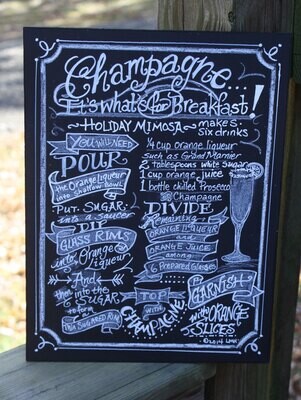 Champagne...
It's what's for Breakfast!
HOLIDAY MIMOSA makes
six drinks
YOU WILL NEED
1/4 cup orange liqueur
such as Grand Marnier
2 tablespoons white Sugar
1 cup orange juice
1 bottle chilled Prosecco
or Champagne
POUR
the Orange liqueur
into shallow bowl
PUT SUGAR
into a saucer
DIP
GLASS RIMS
into Orange
liqueur
And
then into the
SUGAR
to form
SUGARED RIM
DIVIDE
Remaining
ORANGE LIQUEUR
and
ORANGE JUICE
among
6 Prepared Glasses
TOP
with
CHAMPAGNE!
GARNISH
with ORANGE
SLICES
©2014